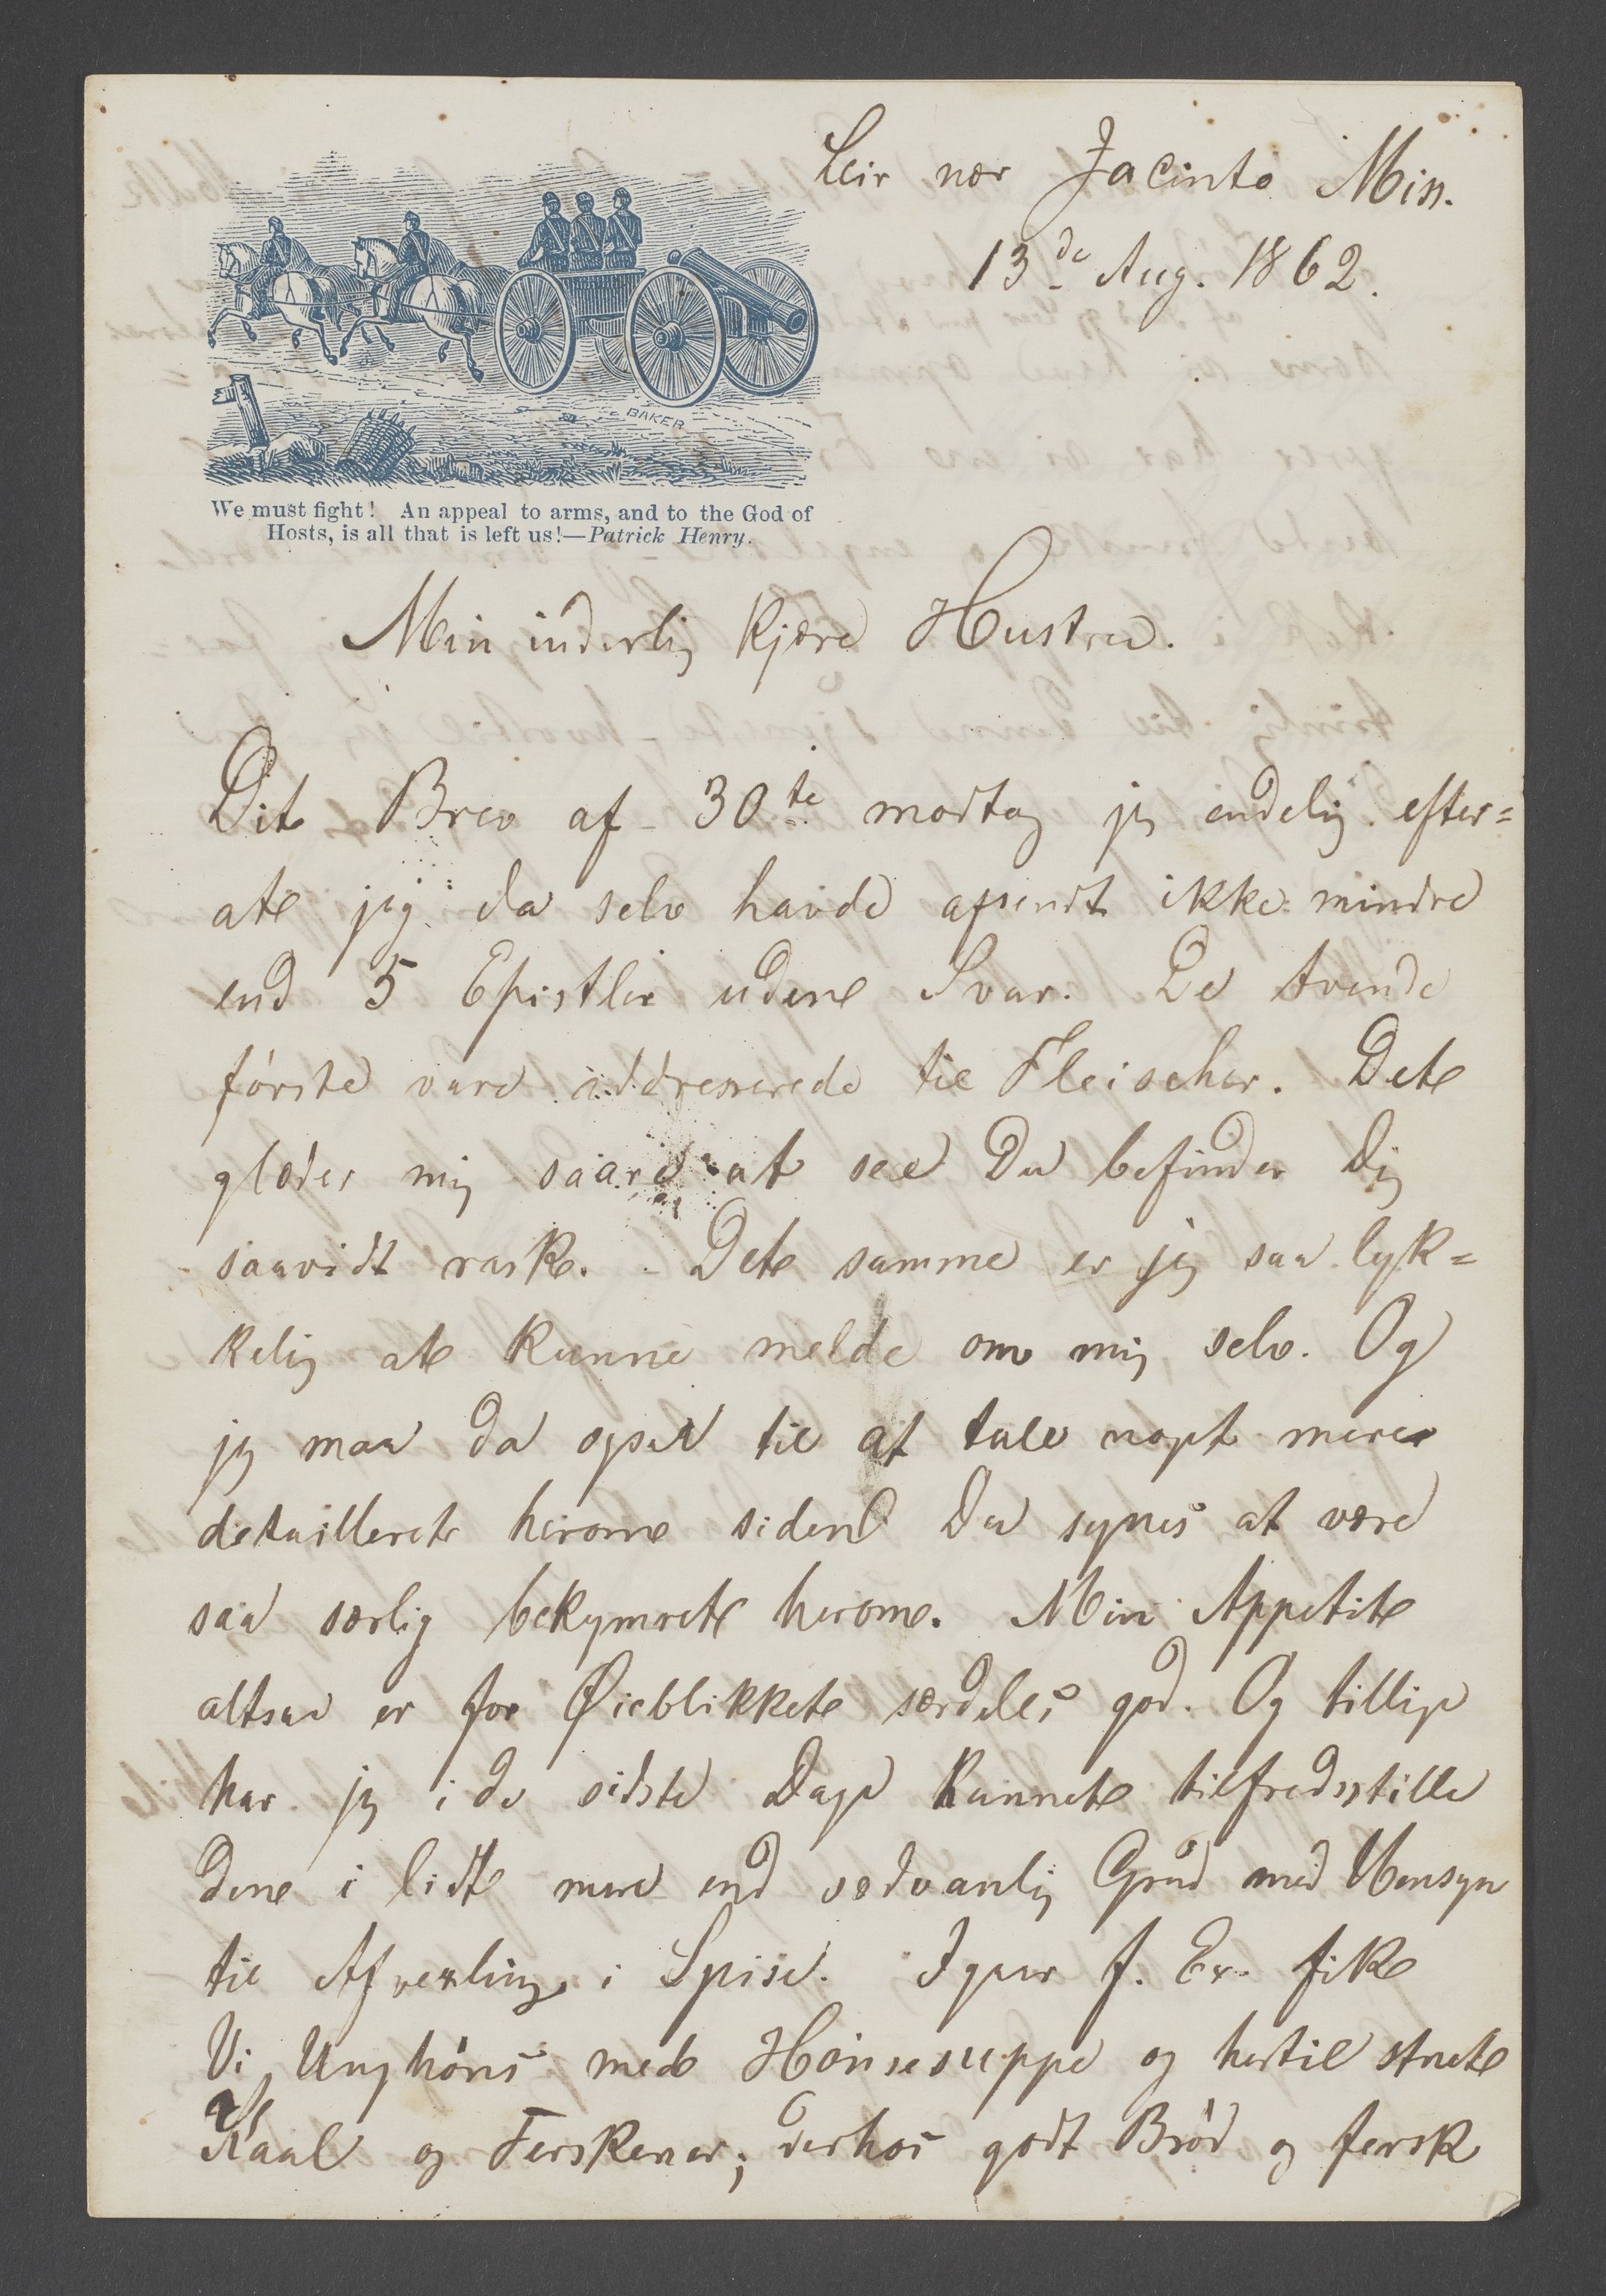 Leir nær Jacinto Miss.
13de Aug. 1862.
BAKER
We must fight! An appeal to arms, and to the God of
Hosts, is all that is left us!—Patrick Henry.
Min inderlig kjære Hustru.
Dit Brev af 30te modtog jeg endelig efter=
at jeg da selv havde afsendt ikke mindre
end 5 Epistler uden Svar. De tvende
første vare addresserede til Fleischer. Det
glæder mig saare at see Du befinder Dig
saavidt rask. Det samme er jeg saa lyk=
kelig at kunne melde om mig selv. Og
jeg maa da ogsaa til at tale noget mere
detailleret herom siden Du synes at være
saa særlig bekymret herom. Min Appetit
altsaa er for Øieblikket særdeles god. Og tillige
har jeg i de sidste Dage kunnet tilfredsstille
den i lidt mere end sædvanlig Grad med Hensyn
til Afvexling i Spise. Igaar f. Ex. fik
Vi Unghøns med Hønsesuppe og hertil
Kaal og Ferskener; derhos godt Brød og fersk